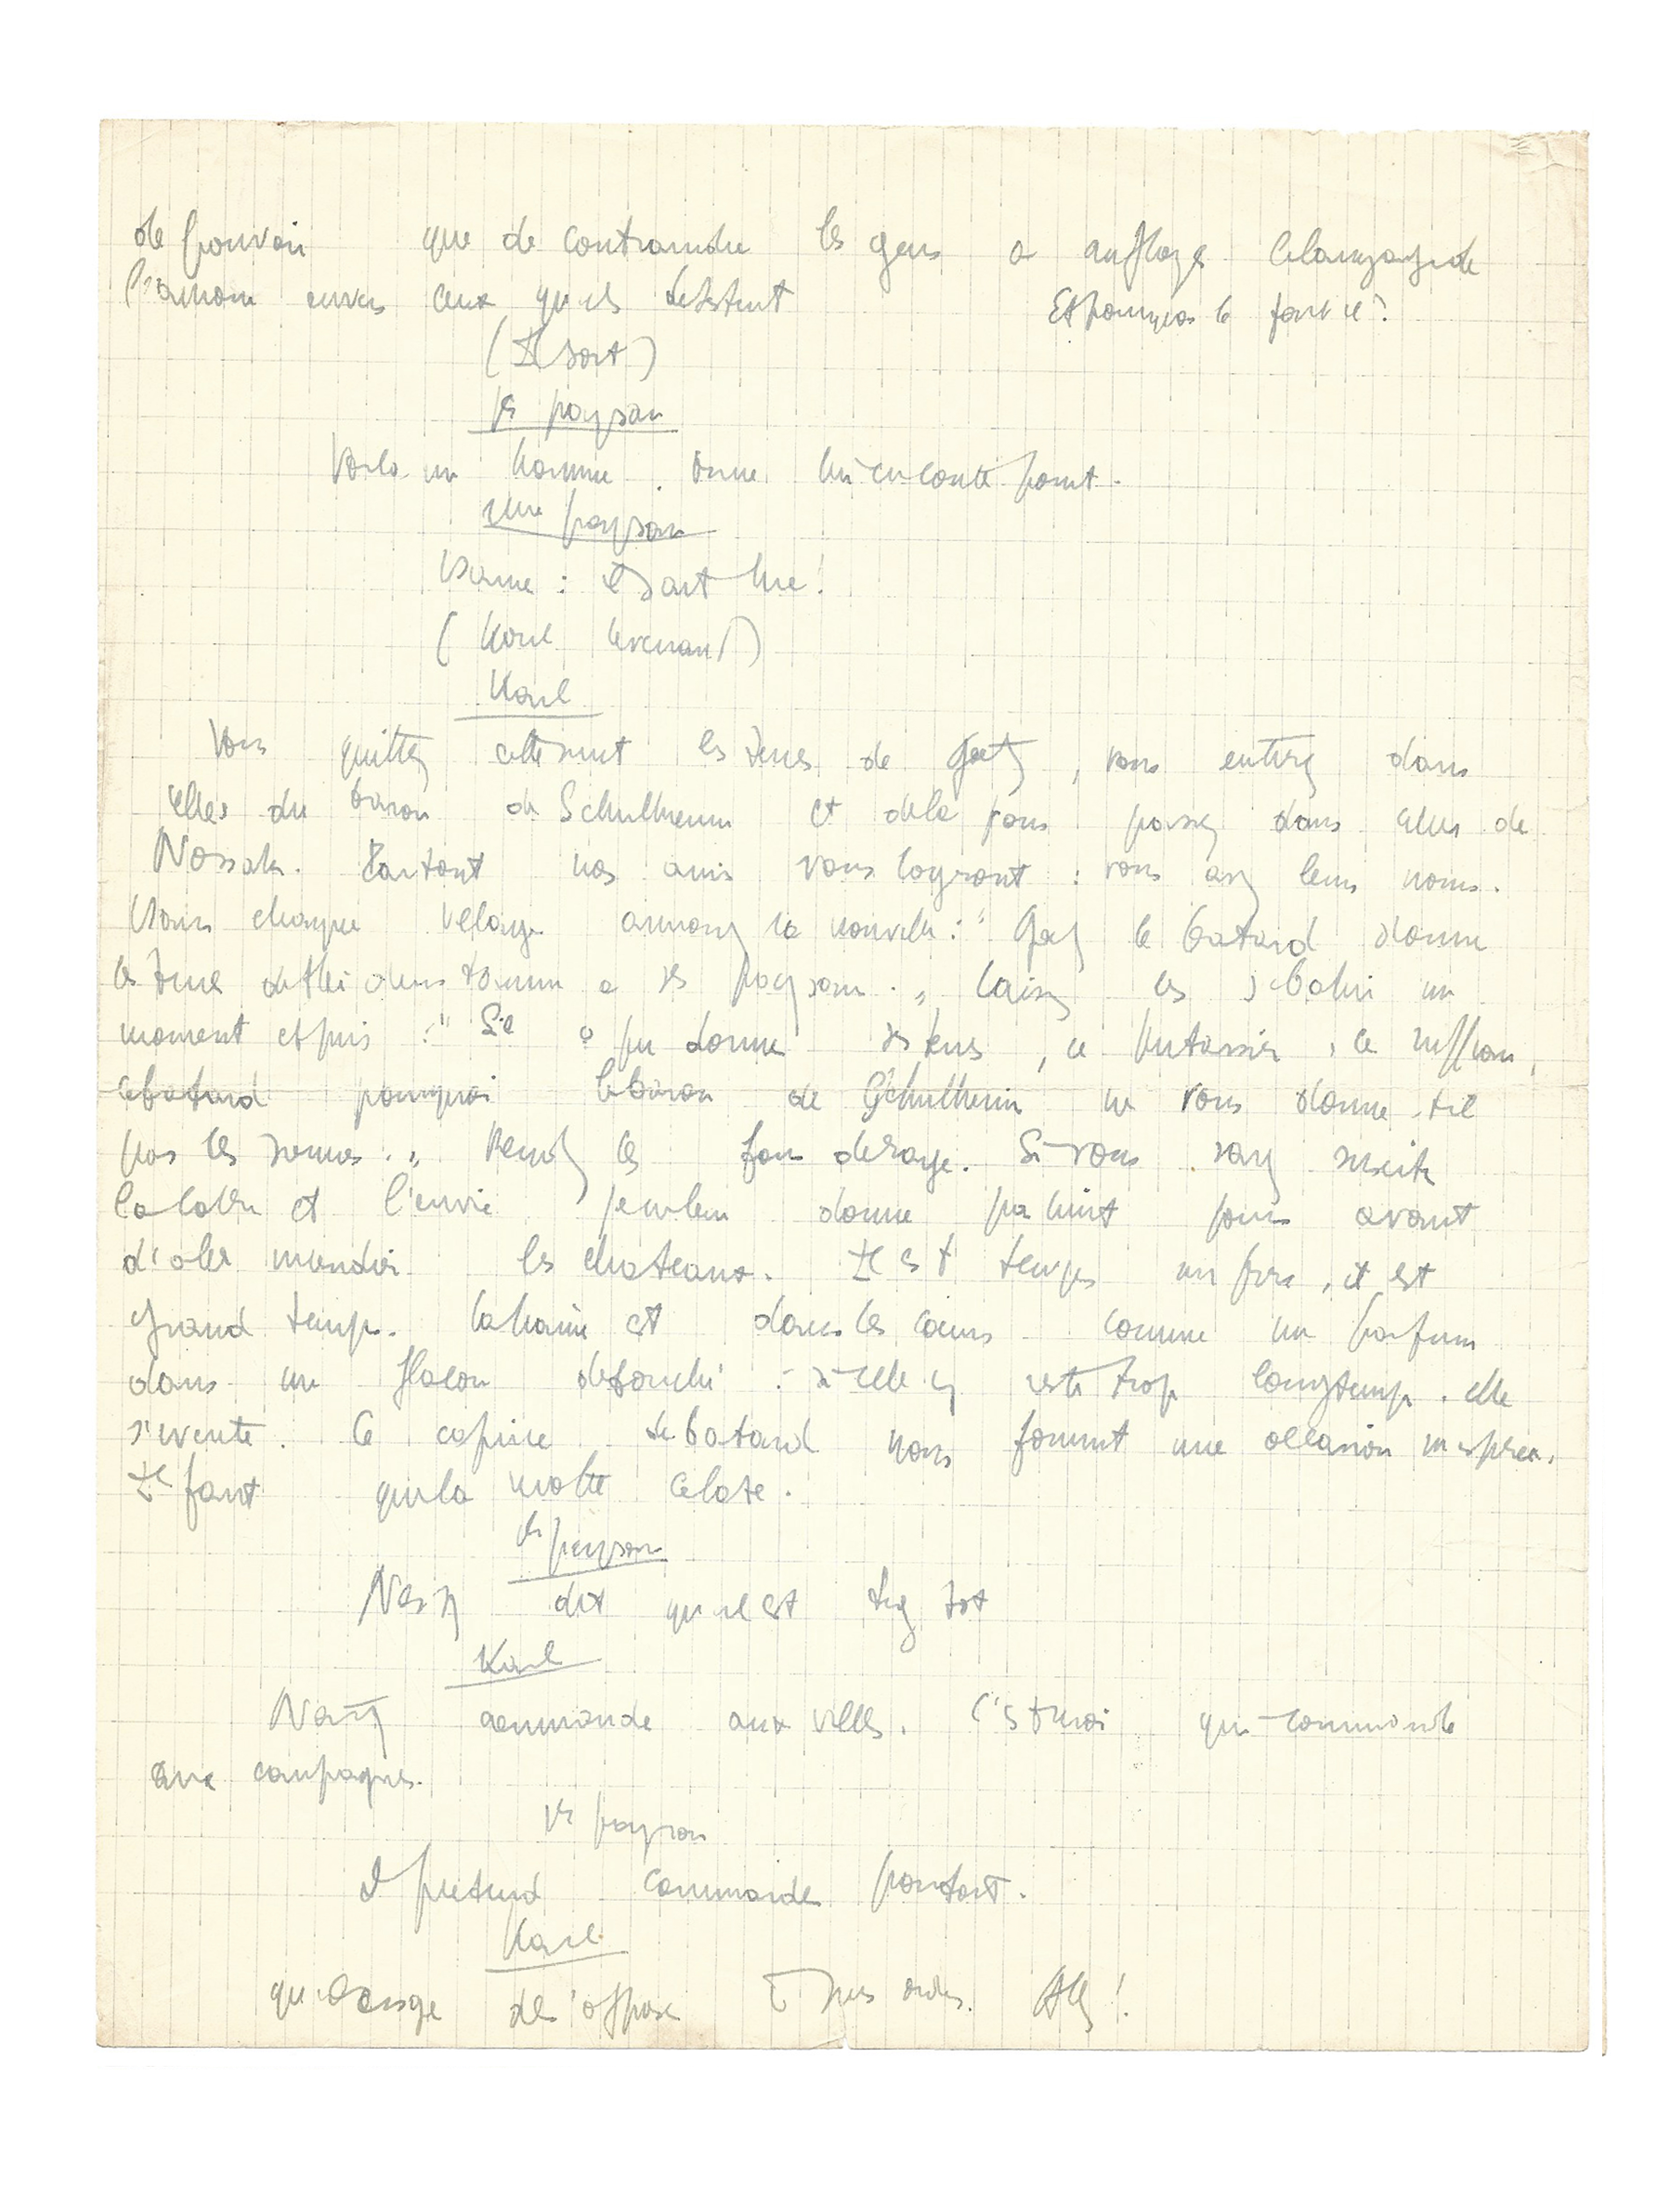 de pouvoir que de contraindre les gens a employer le langage de
l'amour envers ceux qu'ils detestent Et pourquoi le font ils?
(Il sort)
1er paysan
Voila un homme. Donne lui
2eme paysan
Donne : il sait lire!
(Karl revenant)
Karl
Vous quittez cette nuit les terres de Goetz, vous entrez dans
celles du baron de Schulheim et de la vous passez dans celles de
Nossak. Partout nos amis vous logeront : vous avez leurs noms.
Dans chaque village annoncez la nouvelle : " Goetz le batard donne
les terres de Heidenstamm a ses paysans. " Laissez les s'ebahir un
moment et puis : " S'il a pu donner ses terres, ce putassier, ce ruffian,
ce batard pourquoi le baron de Schulheim ne vous donne-t-il
pas les siennes. " Rendez les fous de rage. Si vous savez susciter
la colere et l'envie je ne leur donne pas huit jours avant
d'aller incendier les chateaux. Il est temps mes freres, il est
grand temps. La haine est dans les coeurs comme un parfum
dans un flacon debouché : si elle y reste trop longtemps, elle
s'evente. Ce caprice de batard nous fournit une occasion inesperee.
Il faut que la revolte eclate.
1er paysan
Nasty dit qu'il est trop tot
Karl
Nasty commande aux villes. C'est moi qui commande
aux campagnes.
1er paysan
Il pretend commander partout.
Karl
qu'il songe de s'opposer à mes ordres. Allez!